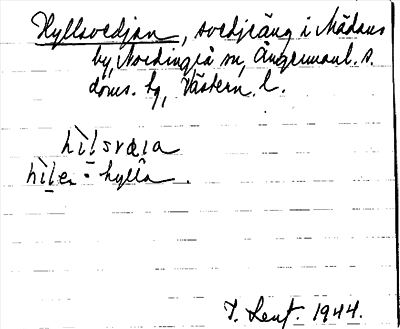 Hyllsvedjan, svedjeäng i Mädans
by, Nordingrå sn, Ångermanl. s.
doms. hg, Västern. l.
hìlsvæɩa
hìle · hylla.
1944.